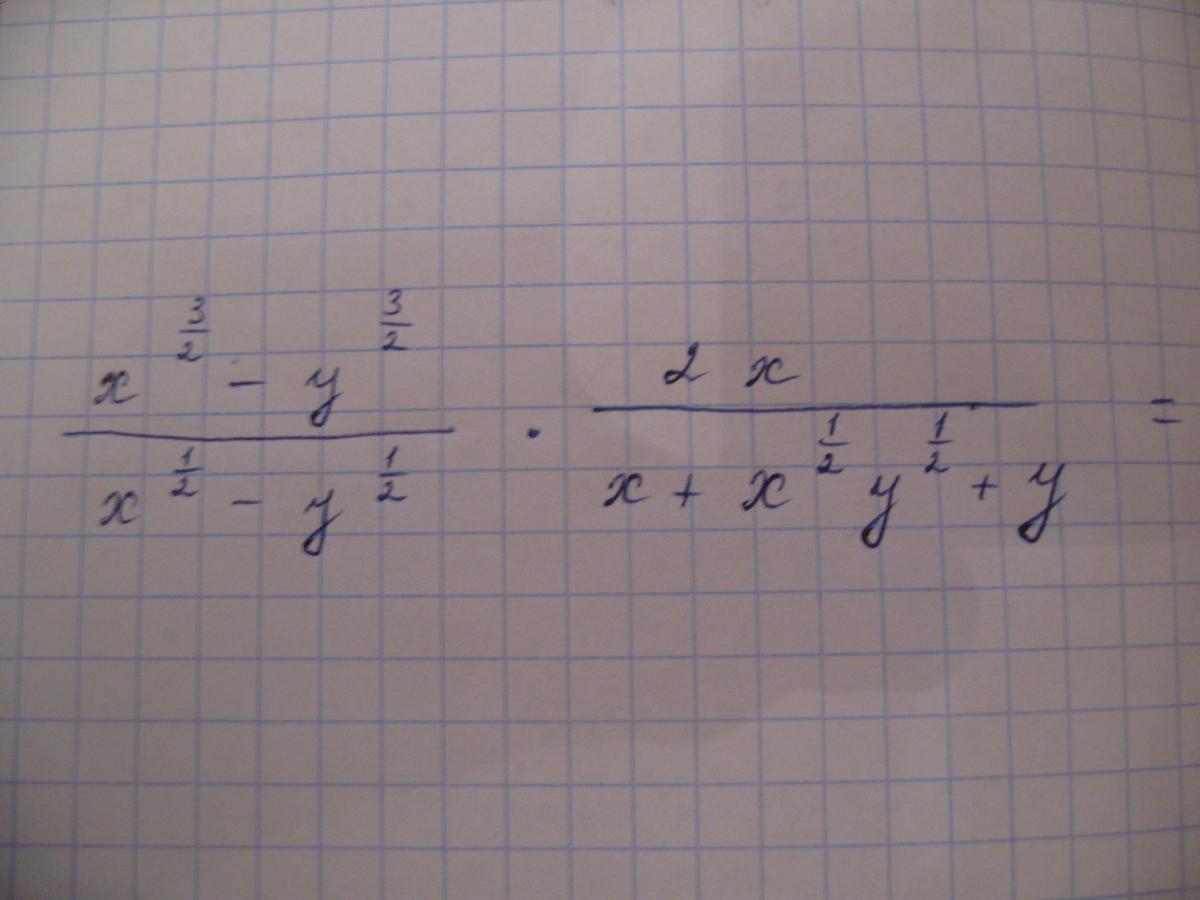 x^{3/2} - y^{3/2} / x^{1/2} - y^{1/2} · 2x / x + x^{1/2} y^{1/2} + y =